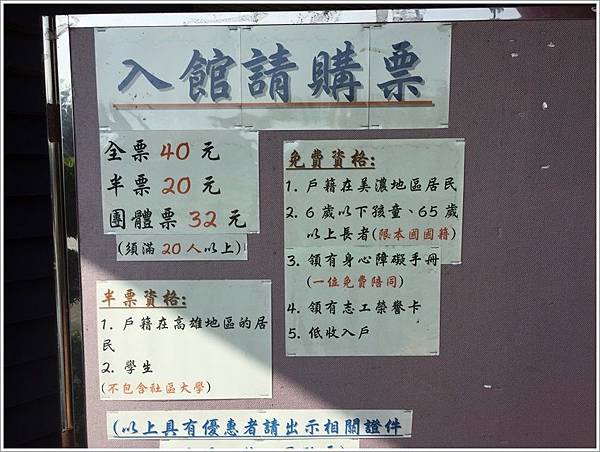 入館請購票
全票 40 元
半票 20 元
團體票 32 元
(須滿 20 人以上)
半票資格:
1. 戶籍在高雄地區的居
民
2. 學生
(不包含社區大學)
免費資格:
1. 戶籍在美濃地區居民
2. 6 歲以下孩童、65 歲
以上長者(限本國國籍)
3. 領有身心障礙手冊
(一位免費陪同)
4. 領有志工榮譽卡
5. 低收入戶
(以上具有優惠者請出示相關證件